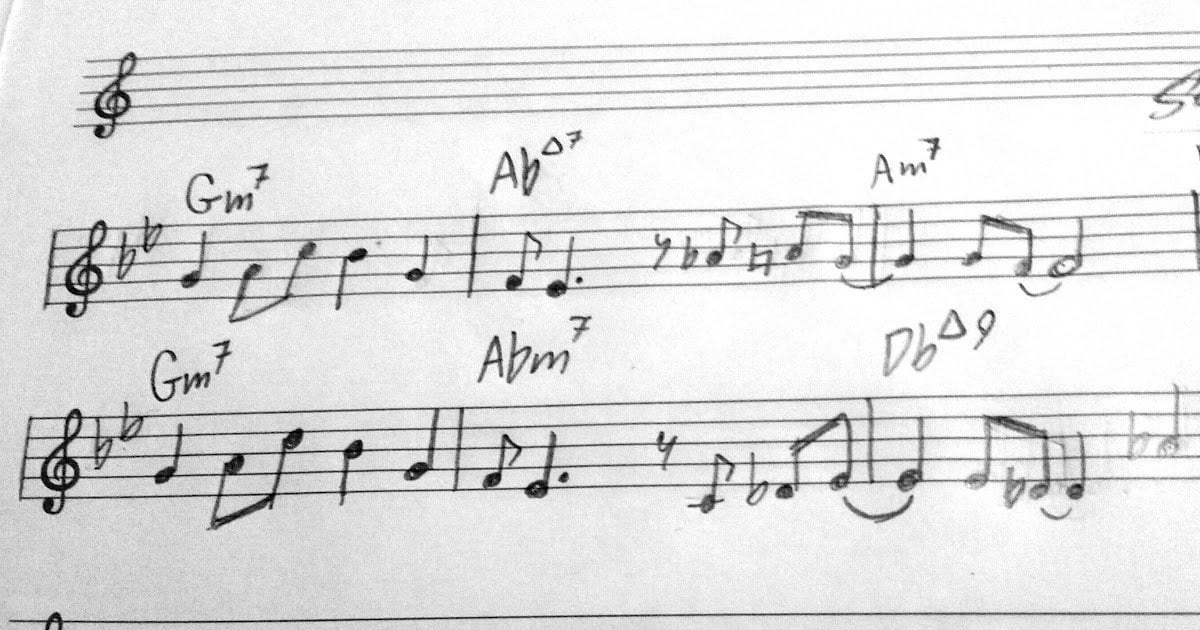 Gm7 AbΔ7 Am7
Gm7 Abm7 DbΔ9